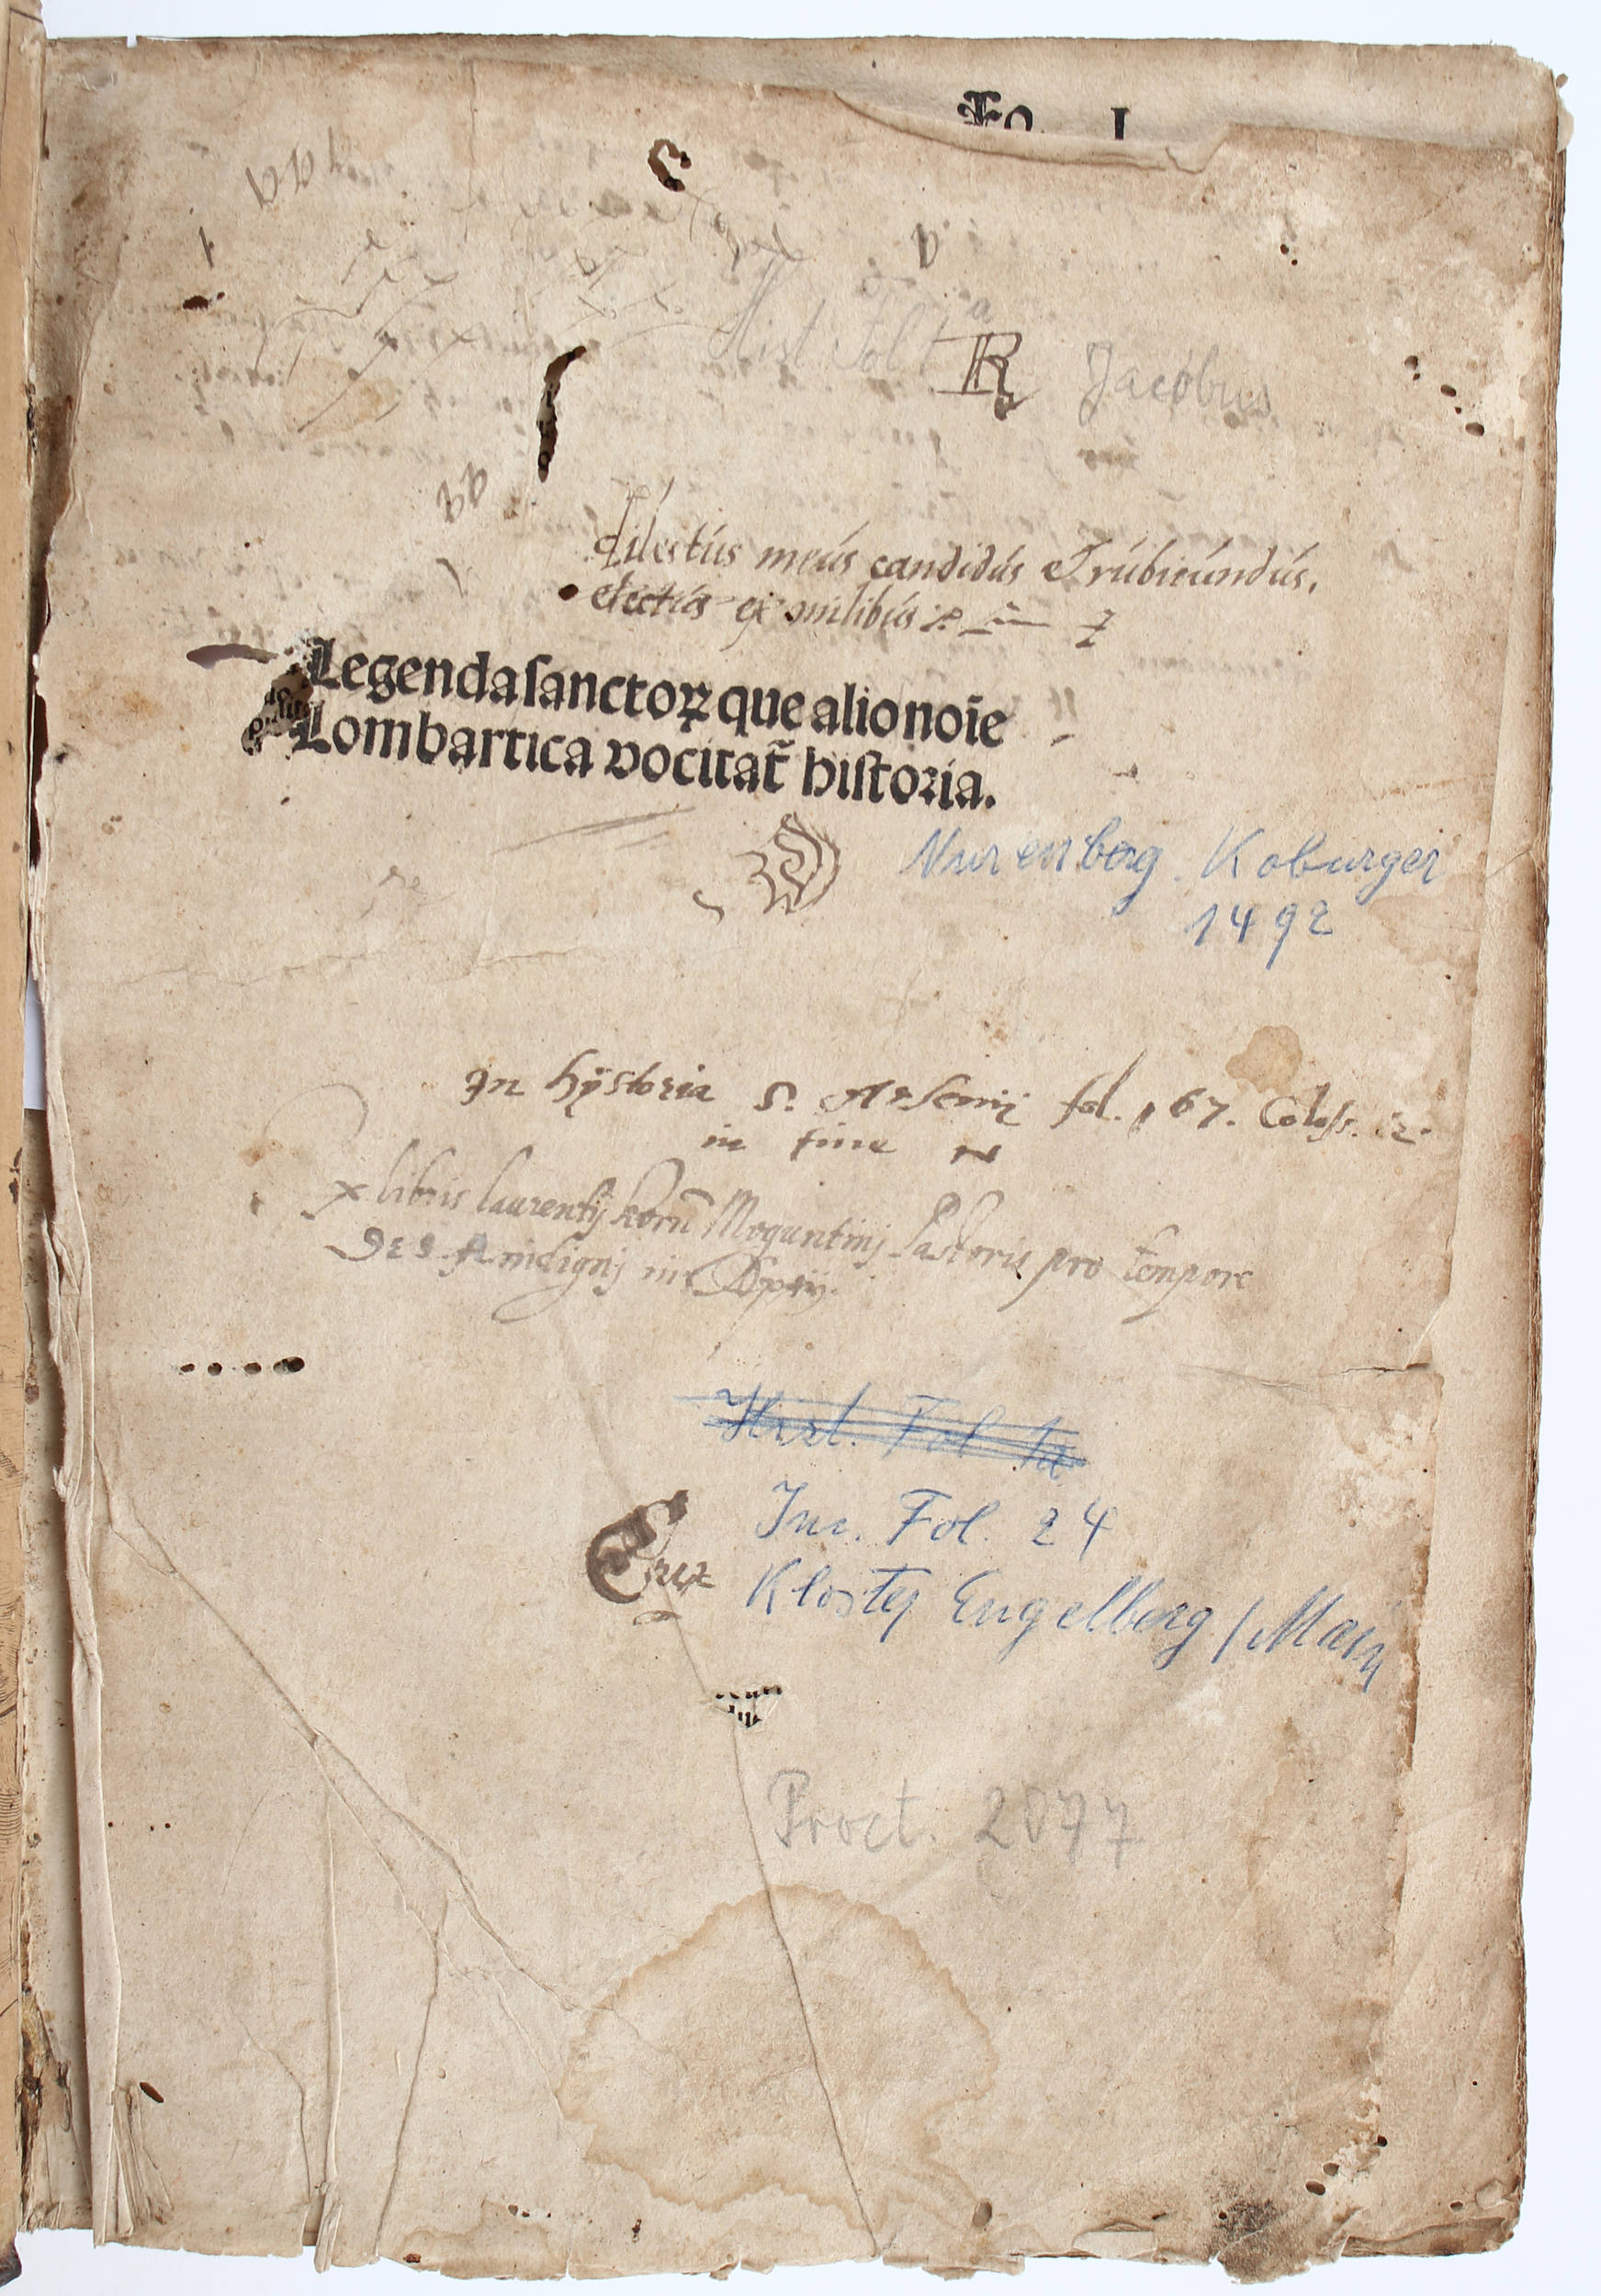 Fo. I
Hist Fol 1a
R Jacobus
dilectus meus candidus et rubicundus,
electus ex milibus
Legenda sanctoꝝ que alio noīe
Lombartica vocitat̄ historia.
Nurenberg. Koburger
1492
In hystoria S. Arsenij fol. 167. Coloss. 2.
in fine
Ex libris laurentij Moguntini Pastoris pro tempore
indignj in
Hist. Fol 1a
Inc. Fol. 24
Kloster Engelberg / Main
Proct. 2077